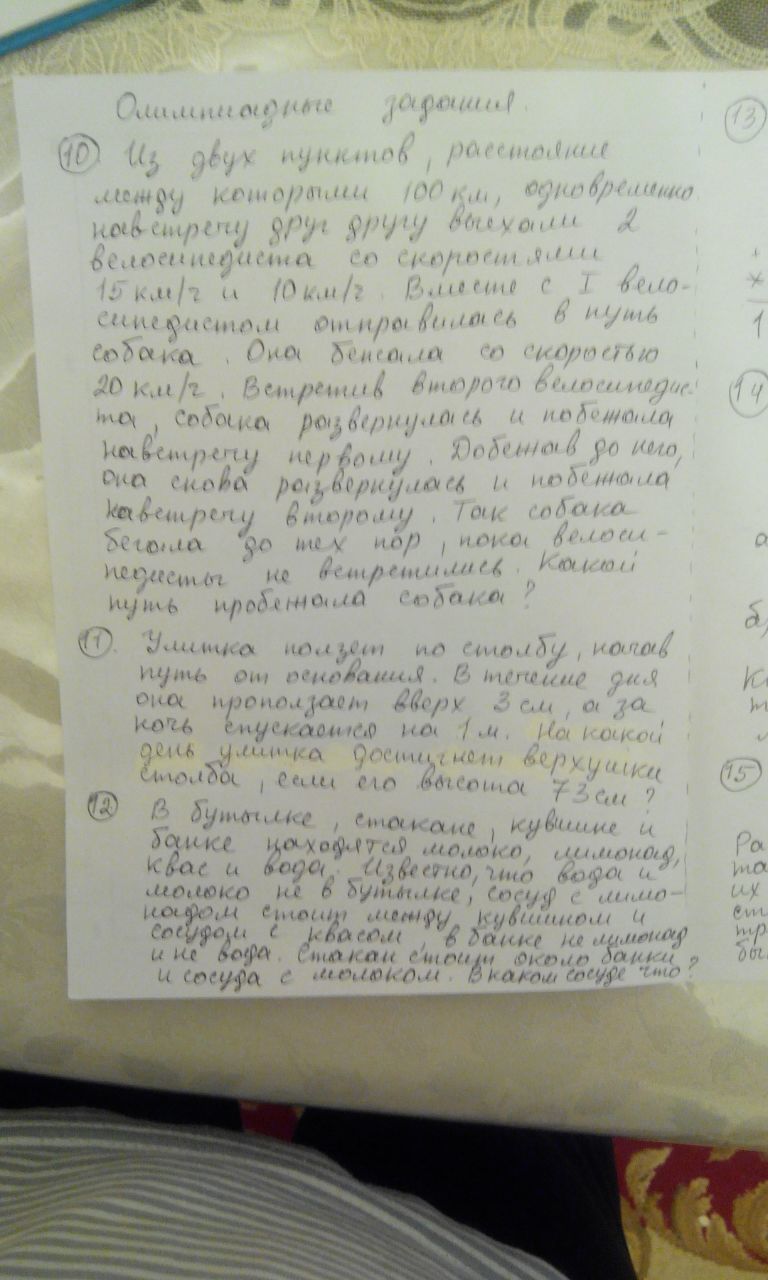 Олимпиадные задания.
10. Из двух пунктов, расстояние
между которыми 100 км, одновременно
навстречу друг другу выехали 2
велосипедиста со скоростями
15 км/ч и 10 км/ч. Вместе с I вело-
сипедистом отправилась в путь
собака. Она бежала со скоростью
20 км/ч. Встретив второго велосипедис-
та, собака развернулась и побежала
навстречу первому. Добежав до него,
она снова развернулась и побежала
навстречу второму. Так собака
бегала до тех пор, пока велоси-
педисты не встретились. Какой
путь пробежала собака?
11. Улитка ползет по столбу, начав
путь от основания. В течение дня
она проползает вверх 3 см, а за
ночь спускается на 1 м. На какой
день улитка достигнет верхушки
столба, если его высота 73 см?
12 В бутылке, стакане, кувшине и
банке находятся молоко, лимонад,
квас и вода. Известно, что вода и
молоко не в бутылке, сосуд с лимо-
надом стоит между кувшином и
сосудом с квасом, в банке не лимонад
и не вода. Стакан стоит около банки
и сосуда с молоком. В каком сосуде что?
13
+
*
1
14
а
б)
К
т
15
Ра
та
их
ст
тр
бы